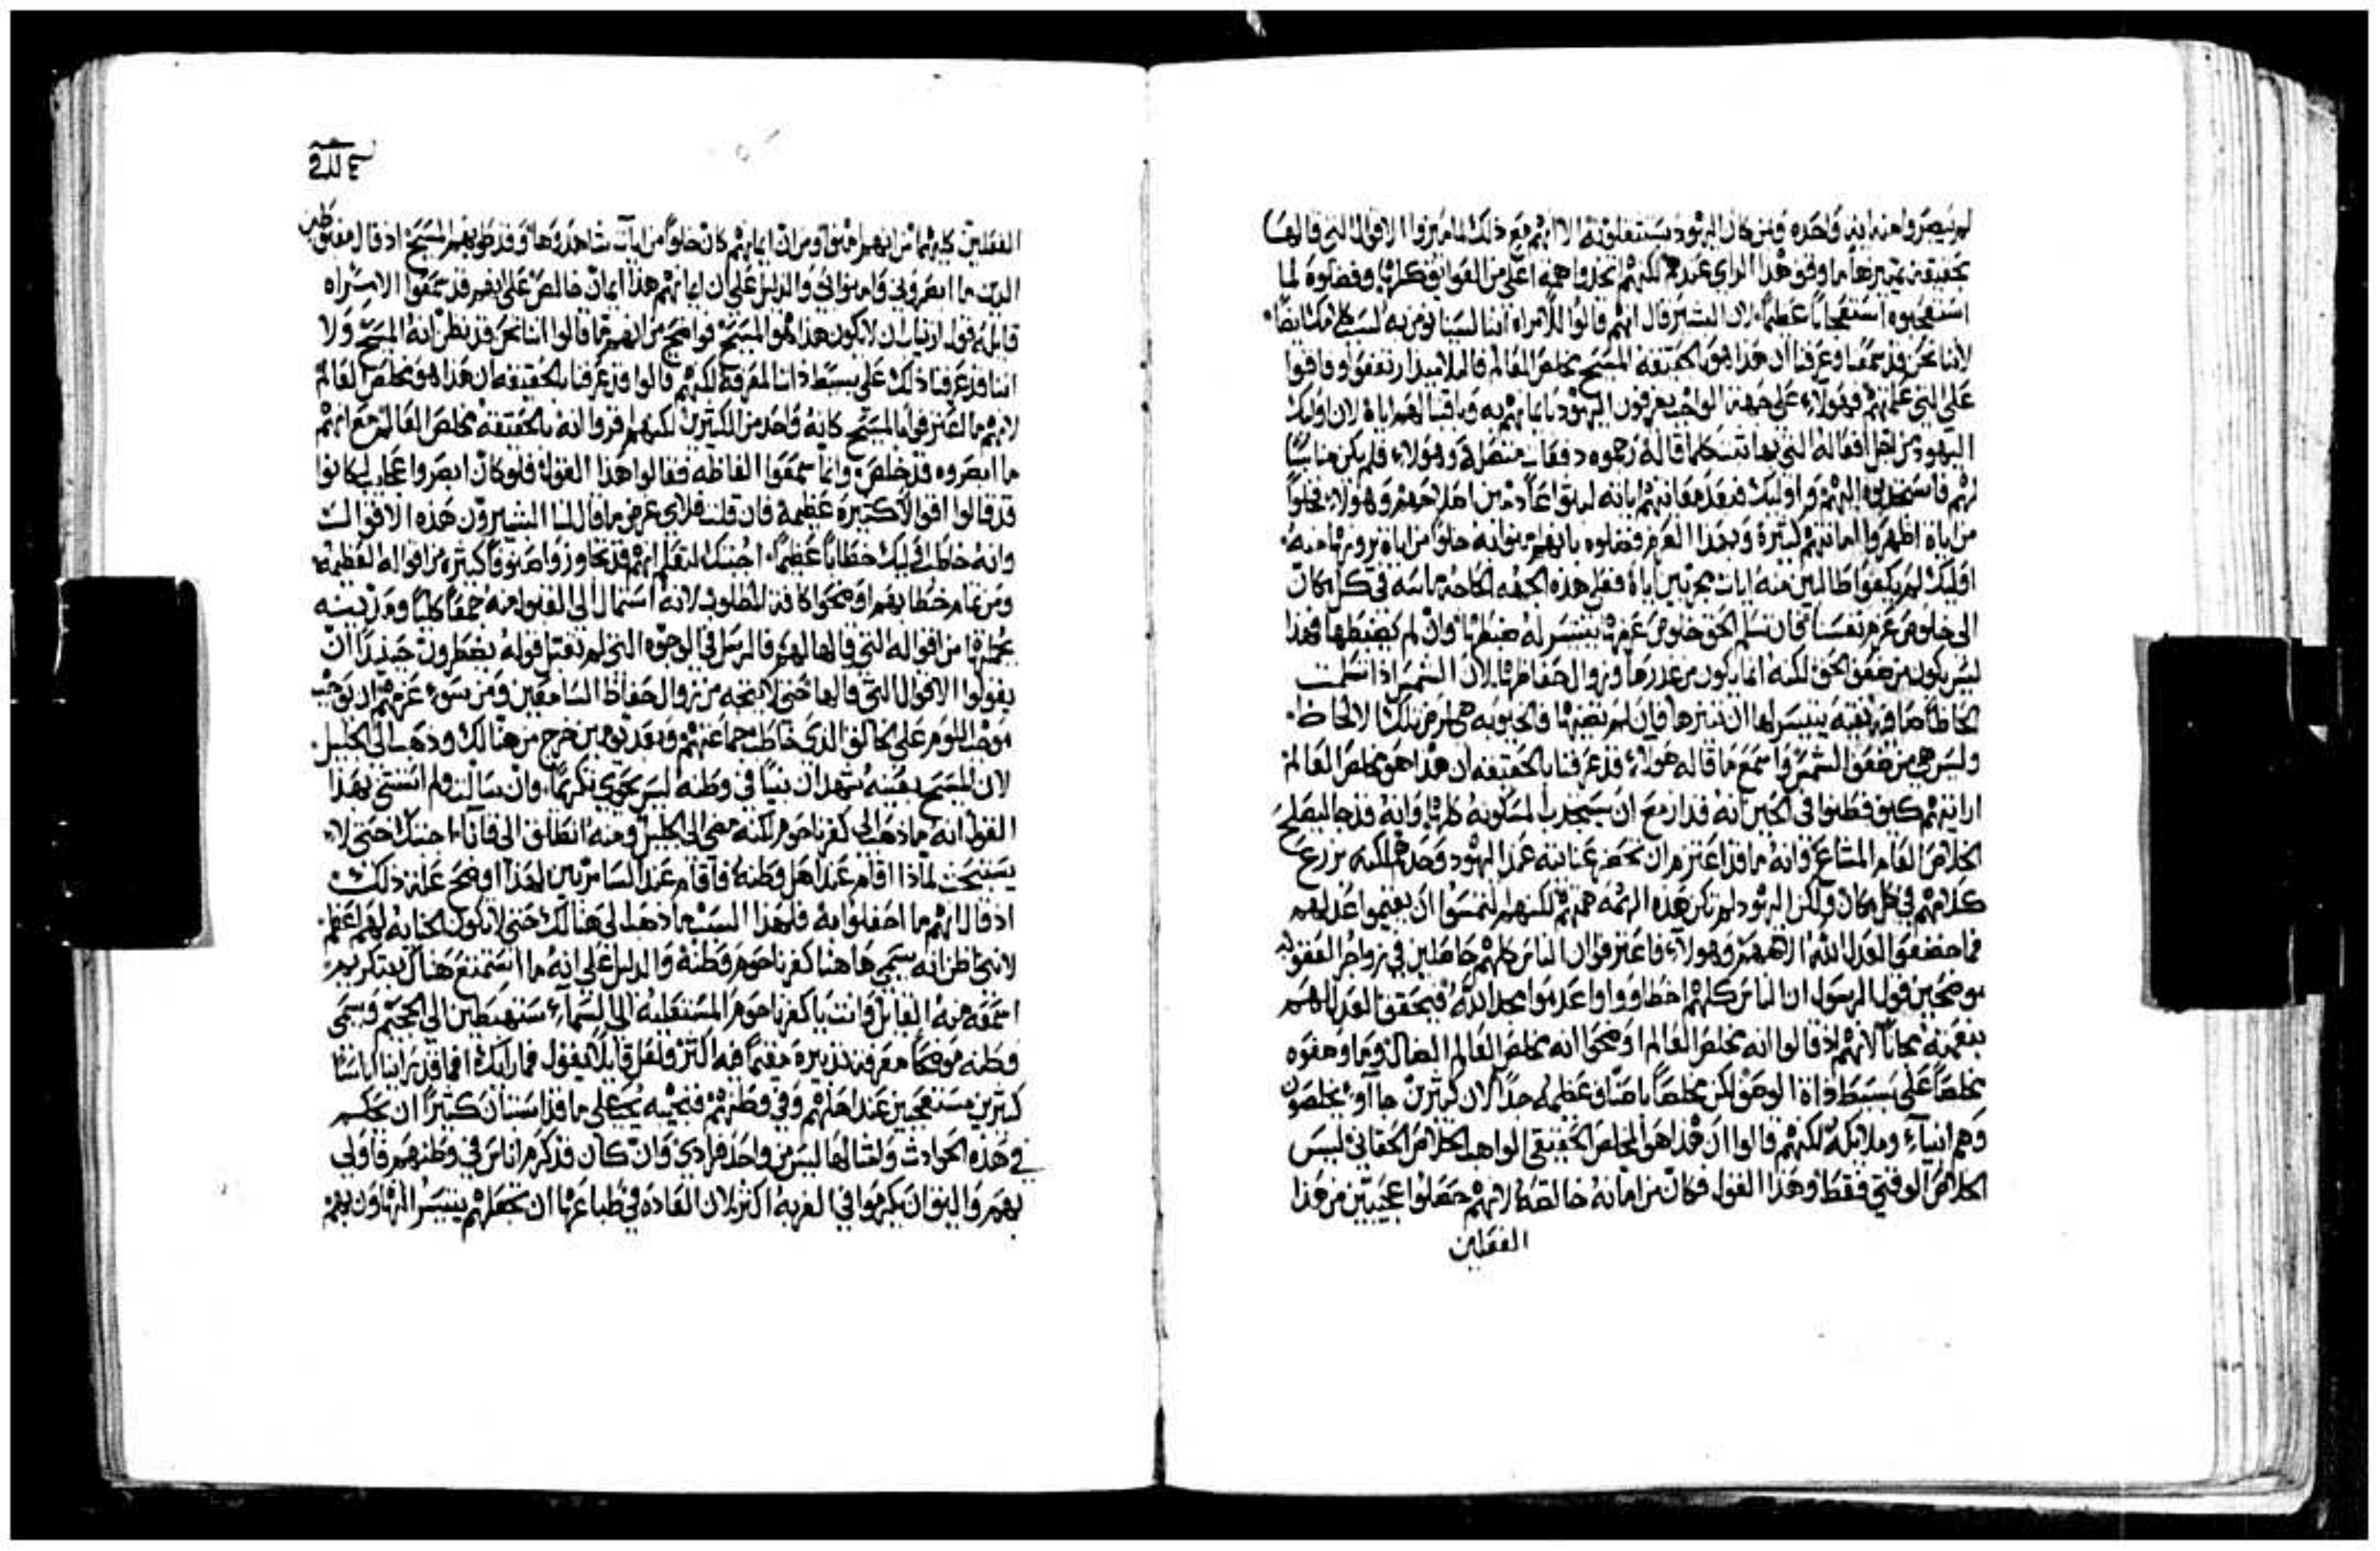 لم يبصروا منه ايه واحده ومن كان اليهود يستثقلونه الا انهم مع ذلك لما ميزوا الاقوال التي قالها
بحقيقة تمييزها ما وقفوا هذا الراي عندهم لكنهم اتخذوا همه اعلى من العوايق كلها وفضلوه لما
استعجبوه استعجاباً عظيماً لان البشير قال انهم قالوا للامراه اننا لسنا نومن به لسبب كلامك ايضاً
لاننا نحن قد سمعنا وعرفنا ان هذا هو بالحقيقه المسيح مخلص العالم فالتلاميذ ارتفعوا وفاقوا
على التي علمتهم فهولاء على جهة الواجب يعرفون اليهود بايمانهم به وباقتبالهم اياه لان اوليك
اليهود من اجل افعاله التي بها ثبت كلما قاله رجموه دفعات متصلة وهولاء فلم يكن مناسباً
لهم فاستجذبوه اليهم واوليك فبعد معاينتهم اياته لبثوا عادمين اصلاحهم وهولاء فخلواً
من اياة اظهروا امانتهم كثيرة وبهذا العزم فضلوه بانهم امنوا به خلواً من اياة يرونها منه
اوليك لم يكفوا طالبين منه ايات مجربين اياه فعلى هذه الجهه الحاجة ماسه في كل مكان
الى خلوص عزم نفسنا فان تسلم الحق خلوص عزمها يتيسر له ضبطها وان لم يضبطها فهذا
ليس يكون من ضعف الحق لكنه انما يكون من غدرها وزوال حفاظها لان الشمس اذا تسلمت
الحاظاً صافيه نقيه يتيسر لها ان تنيرها فان لم تضيها فالخيوبه هي مرض تلك الالحاظ
وليس هي من ضعف الشمس واسمع ما قاله هولاء قد عرفنا بالحقيقه ان هذا هو مخلص العالم
ارايتهم كيف فطنوا في الحين انه قد ازمع ان يستجذب المسكونه كلها وانه قد جا ليصلح
الخلاص العام المشاع وانه ما قد اعتزم ان يحصر عنايته عند اليهود وحدهم لكنه يزرع
كلامهم في كل مكان ولكن اليهود لم تكن هذه الهمه همتهم لكنهم التمسوا ان يقيموا عدلهم
فما خضعوا لعدل الله الاههم وهولاء فاعترفوا ان الناس كلهم حاصلين في زواجر العقوبه
موضحين قول الرسول ان الناس كلهم اخطاووا واعدموا مجد الله فيحقق العدل لهم
بنعمته مجاناً لانهم اذ قالوا انه مخلص العالم اوضحوا انه مخلص العالم الضال وما وصفوه
مخلصاً على بسيط ذاة الوصف لكن مخلصاً باصناف عظيمة جداً لان كثيرين جاآوا يخلصون
وهم انبياء وملايكة لكنهم قالوا ان هذا هو المخلص الحقيقي الواهب الخلاص الحقاني ليس
الخلاص الوقتي فقط وهذا القول فكان من امانه خالصة لانهم حصلوا عجيبين من هذا
الفعلين
الفعلين كليهما من انهم امنوا ومن ان ايمانهم كان خلواً من ايات شاهدوها وقد طوبهم المسيح اذ قال مغبوطين
الذين ما ابصروني وامنوا بي والدليل على ان ايمانهم هذا ايمان خالص على انهم قد سمعوا الامراه
قايله قول ارتياب ان لا يكون هذا هو المسيح فواضح من انهم ما قالوا اننا نحن قد نظن انه المسيح ولا
اننا قد عرفنا ذلك على بسيط ذات المعرفة لكنهم قالوا قد عرفنا بالحقيقه ان هذا هو مخلص العالم
لانهم ما اعترفوا بالمسيح كانه واحد من الكثيرين لكنهم اقروا انه بالحقيقة مخلص العالم مع انهم
ما ابصروه قد خلص وانما سمعوا الفاظه فقالوا هذا القول فلو كان ابصروا عجايب لكانوا
قد قالوا اقوالاً كثيرة عظيمة فان قلت فلاي غرض ما قال لنا البشيرون هذه الاقوال
وانه خاطب اوليك خطاباً عظيماً اجبتك لتعلم انهم قد تجاوزوا صنوفاً كثيرة من اقواله العظيمه
ومن تمام خطابهم اوضحوا كافة المطلوب لانه استمال الى القبول منه جمعاً كلياً ومدينه
بجملتها من اقواله التي قالها لهم فالرسل في الوجوه التي لم تقبل قوله يضطرون حينيذ ان
يقولوا الاقوال التي قالها حتى لا يتجه من زوال حفاظ السامعين ومن سوء عزمهم ان توجب
موضع اللوم على خالق الذي خاطب جماعتهم وبعد يومين خرج من هنالك وذهب الى الجليل
لان المسيح بعينه شهد ان نبياً في وطنه ليس يحوي تكريماً وان سالت ولم استثنى بهذا
القول انه ما ذهب الى كفرناحوم لكنه مضى الى الجليل ومنه انطلق الى قانا اجبتك حتى لا
يستبحث لماذا اقام عند اهل وطنه فاقام عند السامريين لهذا اوضح علة ذلك
اذ قال انهم ما احفلوا به فلهذا السبب ما ذهب الى هنالك حتى لا تكون الجنايه لهم اعظم
لانني اظن انه سمي هاهنا كفرناحوم وطنه والدليل على انه ما استمتع هناك بتكريم
اسمعه منه القايل وانت يا كفرناحوم المستعليه الى السماء ستهبطين الى الجحيم وسمى
وطنه موضحاً معرفة تدبيره مقيماً فيه اكثر ولعل قايلاً يقول فما رايك افما قد راينا اناساً
كثيرين مستعجبين عند اهلهم وفي وطنهم فنجيبه نحن على ما قد استبان كثيراً ان نحكم
في هذه الحوادث وامثالها ليس من واحد فرادى وان كان قد كرم اناس في وطنهم فاولى
بهم واليق ان يكرموا في الغربه اكثر لان العاده في طباعها ان تجعلهم يتيسر التهاون بهم